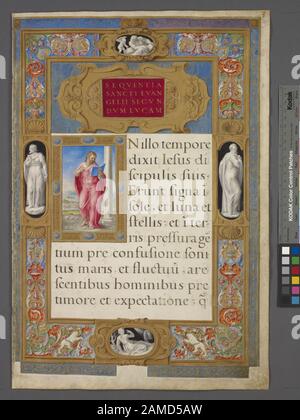 SEQVENTIA
SANCTI EVAN
GELII SECVN
DVM LVCAM
N illo tempore
dixit Iesus di
scipulis suis
Erunt signa i
sole, et luna et
stellis: et i ter
ris pressura ge
tium pre confusione soni
tus maris, et fluctuū: are
scentibus hominibus pre
timore et expectatione: q̄
Kodak
KODAK Color Control Patches
alamy
Image ID: 2AMD5AW
www.alamy.com